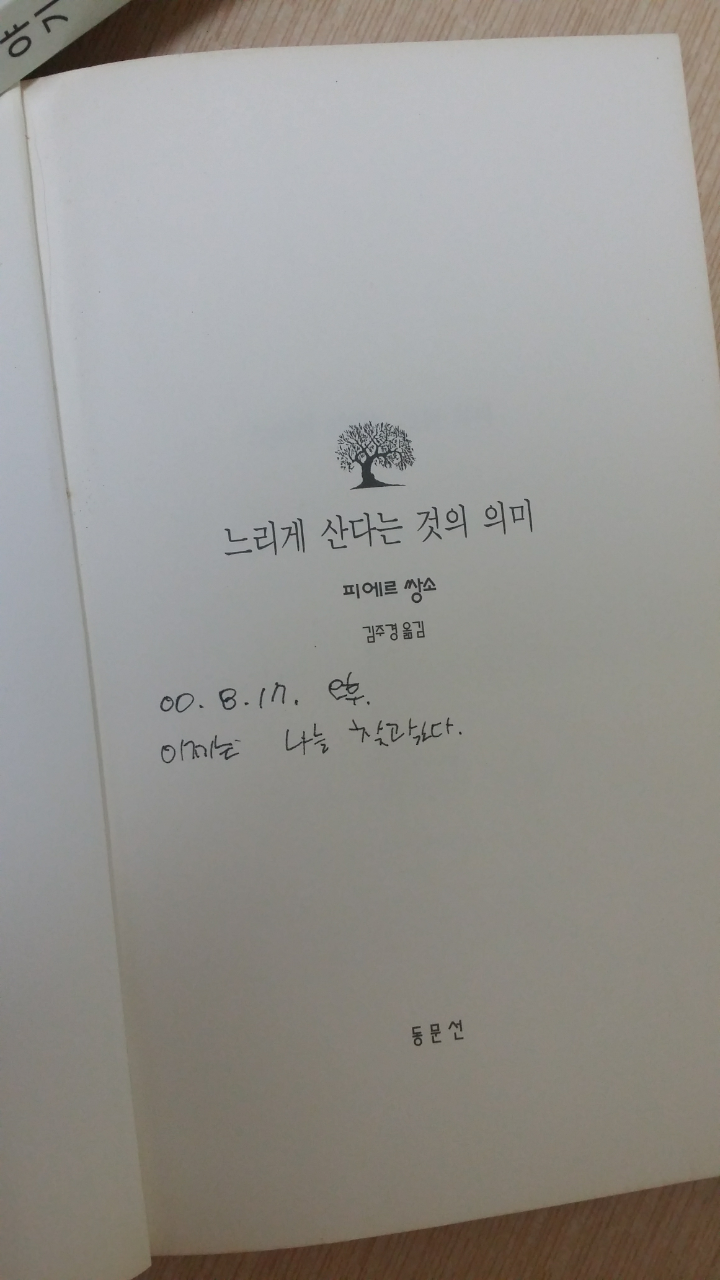 야기
느리게 산다는 것의 의미
피에르 쌍소
김주경 옮김
00. 8. 17. 오후.
이제는 나를 찾고싶다.
동문선